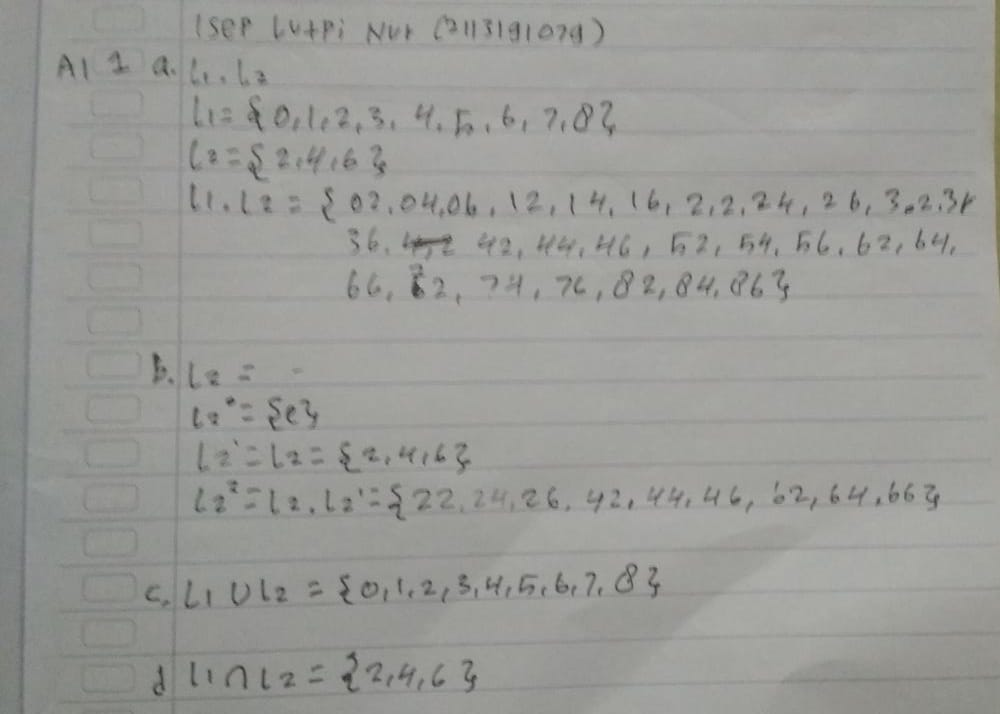 Isep Lutpi Nur (2113191079)
A1 1 a. L1. L2
L1 = {0,1,2,3, 4,5,6,7,8}
L2 = {2,4,6}
L1. L2 = {02,04,06, 12, 14, 16, 2,2,24, 26, 3.2.34
36, 42, 44, 46, 52, 54, 56, 62, 64,
66, 72, 74, 76, 82, 84, 86}
b. L2 = -
L2° = {e}
L2' = L2 = {2,4,6}
L2² = L2. L2' = {22, 24, 26, 42, 44, 46, 62, 64, 66}
c. L1 ∪ L2 = {0,1,2,3,4,5,6,7,8}
d L1 ∩ L2 = {2,4,6}